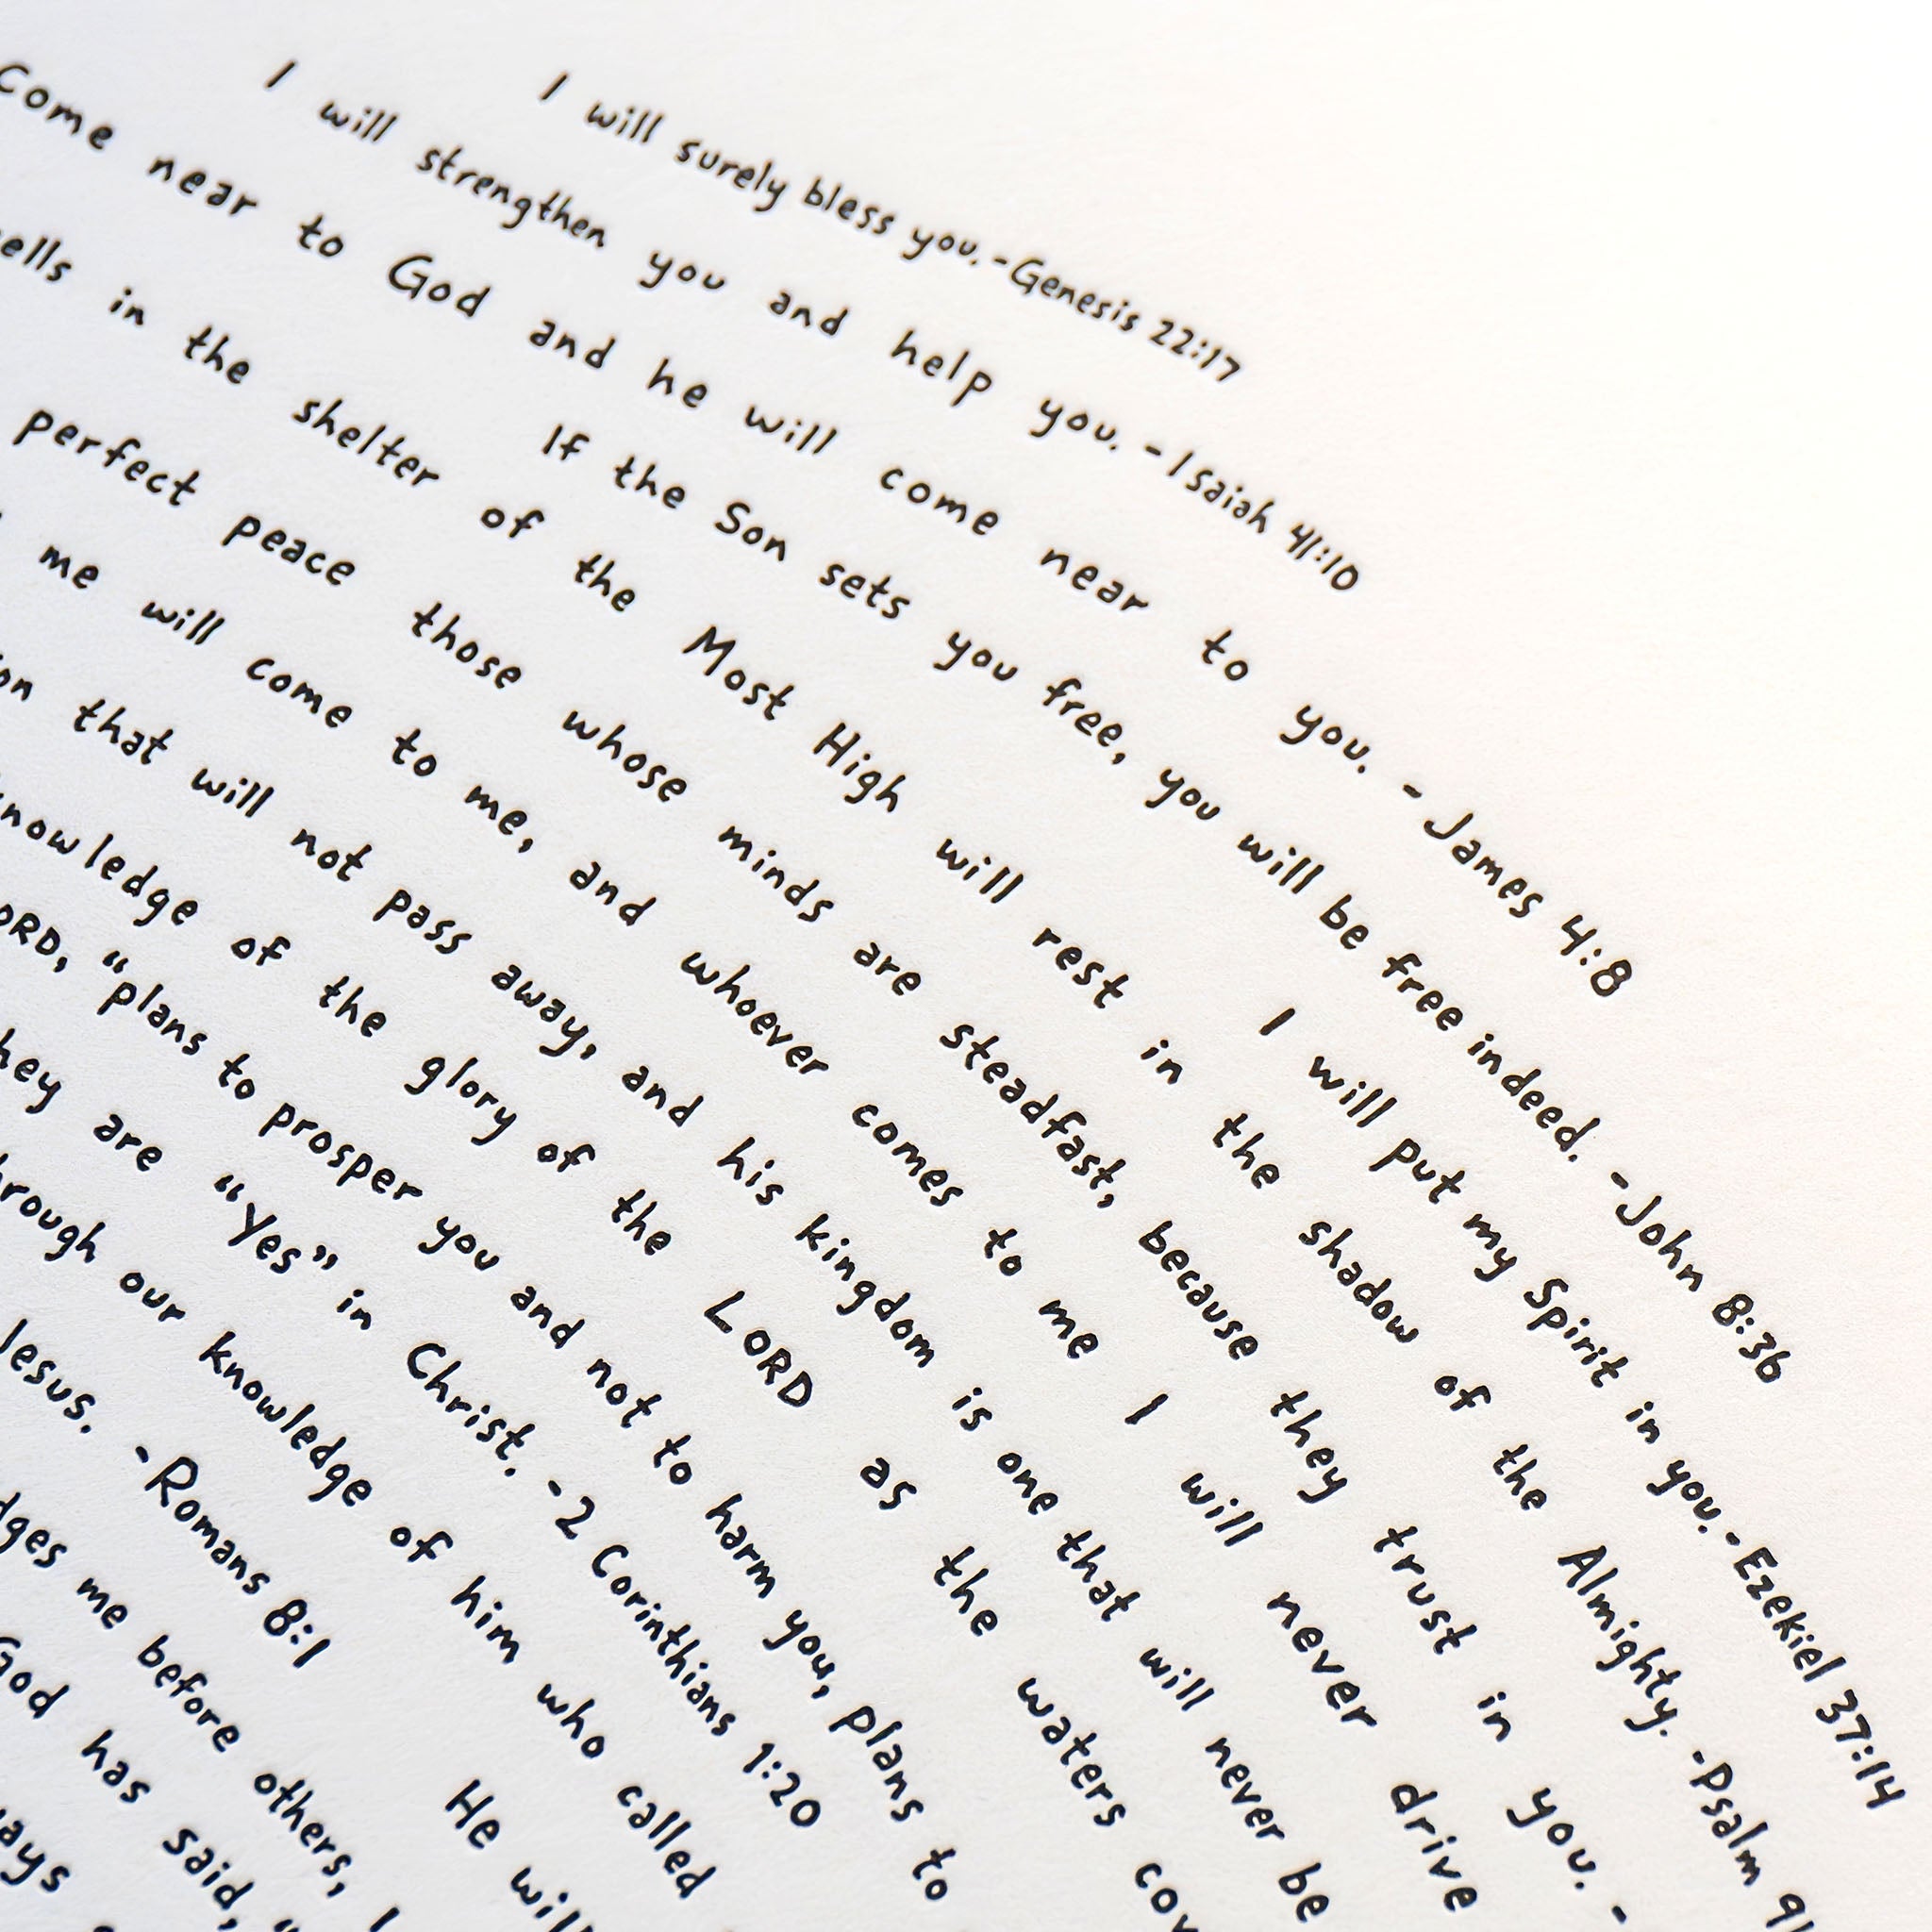 I will surely bless you. -Genesis 22:17
I will strengthen you and help you. -Isaiah 41:10
Come near to God and he will come near to you. - James 4:8
If the Son sets you free, you will be free indeed. -John 8:36
I will put my Spirit in you. -Ezekiel 37:14
in the shelter of the Most High will rest in the shadow of the Almighty. -Psalm 91
perfect peace those whose minds are steadfast, because they trust in you. -
me will come to me, and whoever comes to me I will never drive
that will not pass away, and his kingdom is one that will never be
knowledge of the glory of the LORD as the waters cov
LORD, "plans to prosper you and not to harm you, plans to
hey are "Yes" in Christ. -2 Corinthians 1:20
hrough our knowledge of him who called
Jesus. -Romans 8:1
He wil
dges me before others, I
God has said, "
ays